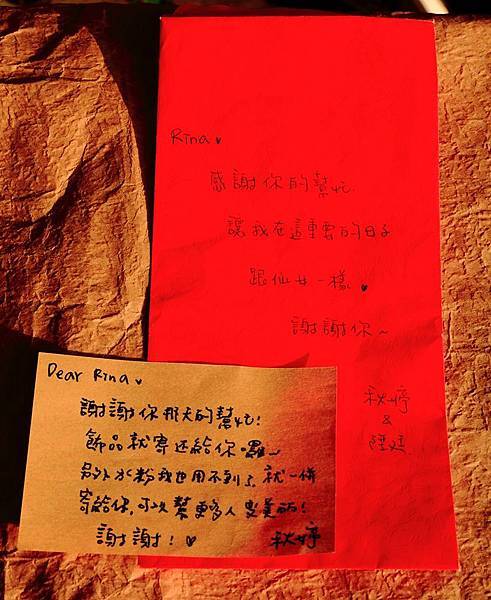 Rina ♥
感謝你的幫忙
讓我在這重要的日子
跟仙女一樣 ♥
謝謝你~
秋婷
&
Dear Rina ♥
謝謝你那天的幫忙!
飾品就寄还給你囉~
另外水粉我也用不到了,就一併
寄給你,可以幫更多人变美丽!
謝謝! ♥ 秋婷